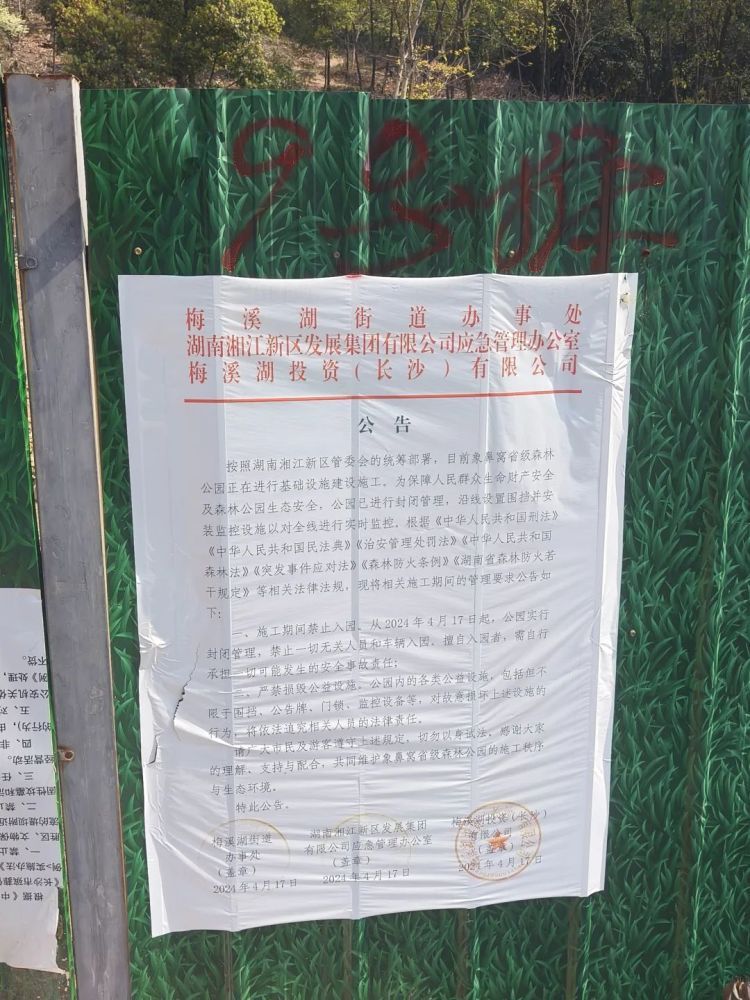 9号桩
梅溪湖街道办事处
湖南湘江新区发展集团有限公司应急管理办公室
梅溪湖投资(长沙)有限公司
公告
按照湖南湘江新区管委会的统筹部署，目前象鼻窝省级森林
公园正在进行基础设施建设施工。为保障人民群众生命财产安全
及森林公园生态安全，公园已进行封闭管理，沿线设置围挡并安
装监控设施以对全线进行实时监控。根据《中华人民共和国刑法》
《中华人民共和国民法典》《治安管理处罚法》《中华人民共和国
森林法》《突发事件应对法》《森林防火条例》《湖南省森林防火若
干规定》等相关法律法规，现将相关施工期间的管理要求公告如
下：
一、施工期间禁止入园。从2024年4月17日起，公园实行
封闭管理，禁止一切无关人员和车辆入园。擅自入园者，需自行
承担一切可能发生的安全事故责任；
二、严禁损毁公益设施。公园内的各类公益设施，包括但不
限于围挡、公告牌、门锁、监控设备等，对故意损坏上述设施的
行为，将依法追究相关人员的法律责任。
请广大市民及游客遵守上述规定，切勿以身试法。感谢大家
的理解、支持与配合，共同维护象鼻窝省级森林公园的施工秩序
与生态环境。
特此公告。
梅溪湖街道
办事处
（盖章）
2024年4月17日
湖南湘江新区发展集团
有限公司应急管理办公室
（盖章）
2024年4月17日
梅溪湖投资(长沙)
有限公司
（盖章）
2024年4月17日
根据《中
《长沙市
例》实施办法》
一、禁止
胜区、文物保
二、禁
三、任
经营活动。
四、非
的行为)，由
五、对
公安机关依
例》处理，
不贷。